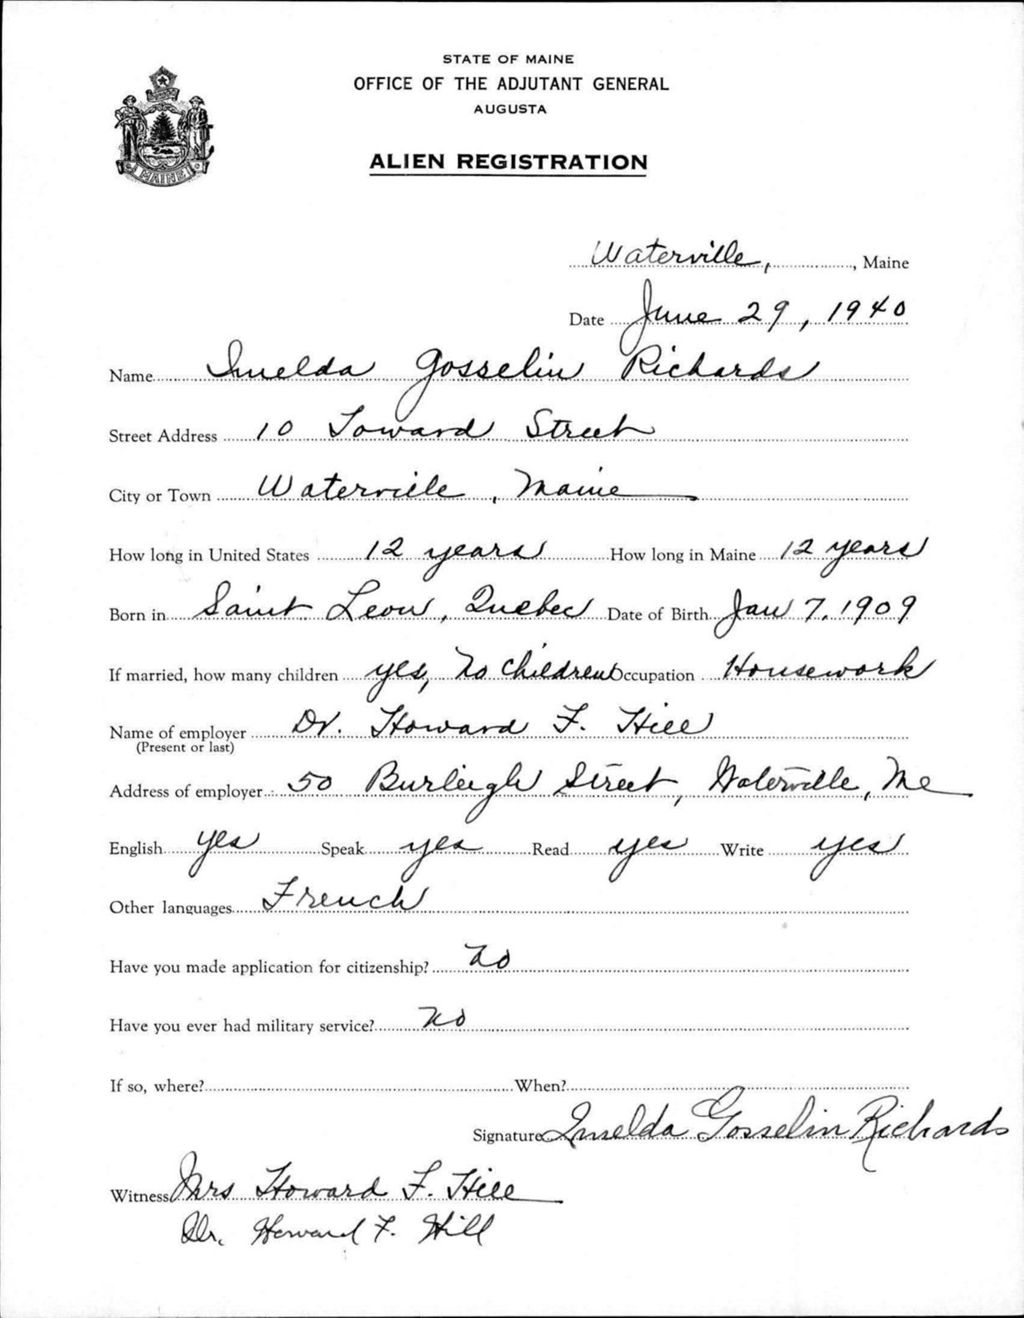 STATE OF MAINE
OFFICE OF THE ADJUTANT GENERAL
AUGUSTA
ALIEN REGISTRATION
MAINE
Waterville, , Maine
Date June 29, 1940
Name Imelda Gosselin Richards
Street Address 10 Toward Street
City or Town Waterville, Maine
How long in United States 12 years How long in Maine 12 years
Born in Saint Leon, Quebec Date of Birth Jan 7, 1909
If married, how many children yes, no children Occupation Housework
Name of employer Dr. Howard F. Hill
(Present or last)
Address of employer 50 Burleigh Street, Waterville, Me
English yes Speak yes Read yes Write yes
Other languages French
Have you made application for citizenship? no
Have you ever had military service? no
If so, where? When?
Signature Imelda Gosselin Richards
Witness Mrs Howard F. Hill
Dr. Howard F. Hill